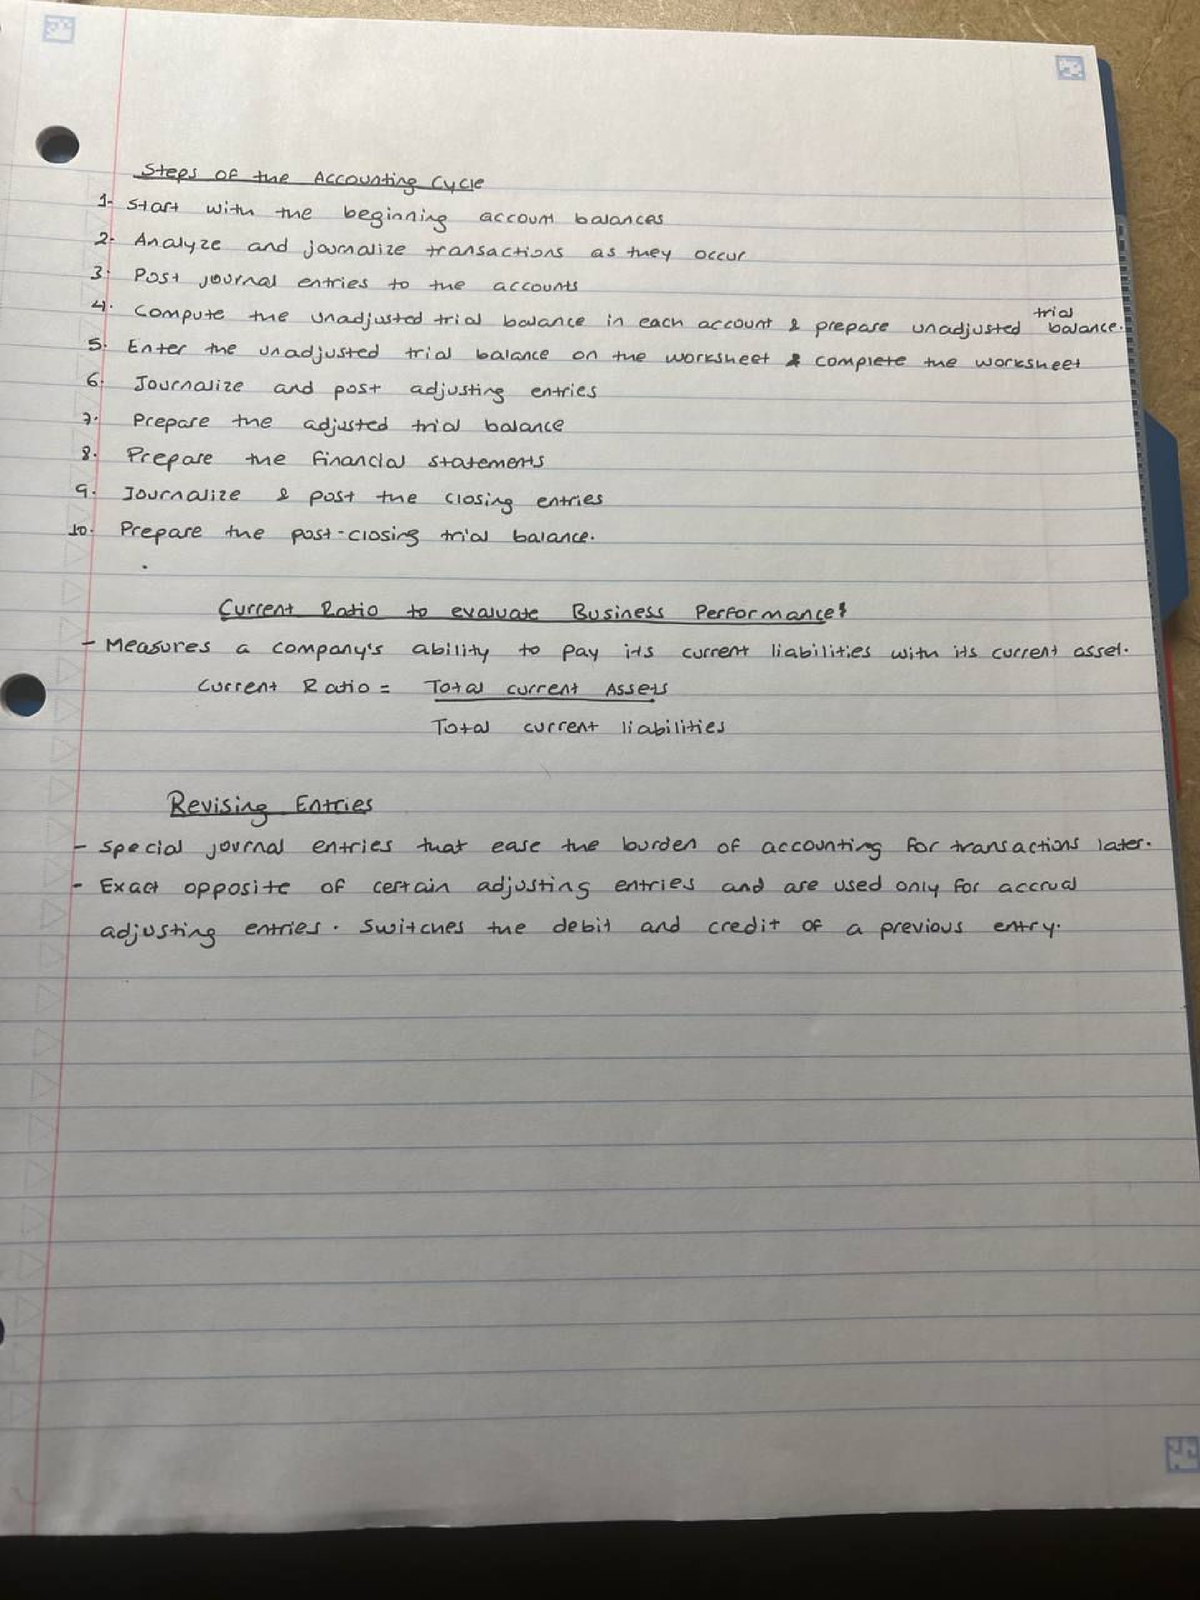 Steps of the Accounting Cycle
1. Start with the beginning account balances
2. Analyze and journalize transactions as they occur
3. Post journal entries to the accounts
4. Compute the unadjusted trial balance in each account & prepare unadjusted trial balance.
5. Enter the unadjusted trial balance on the worksheet & complete the worksheet
6. Journalize and post adjusting entries
7. Prepare the adjusted trial balance
8. Prepare the financial statements
9. Journalize & post the closing entries
10. Prepare the post-closing trial balance.
Current Ratio to evaluate Business Performance:
- Measures a company's ability to pay its current liabilities with its current asset.
Current Ratio = Total current Assets
Total current liabilities
Revising Entries
- special journal entries that ease the burden of accounting for transactions later.
- Exact opposite of certain adjusting entries and are used only for accrual
adjusting entries. Switches the debit and credit of a previous entry.